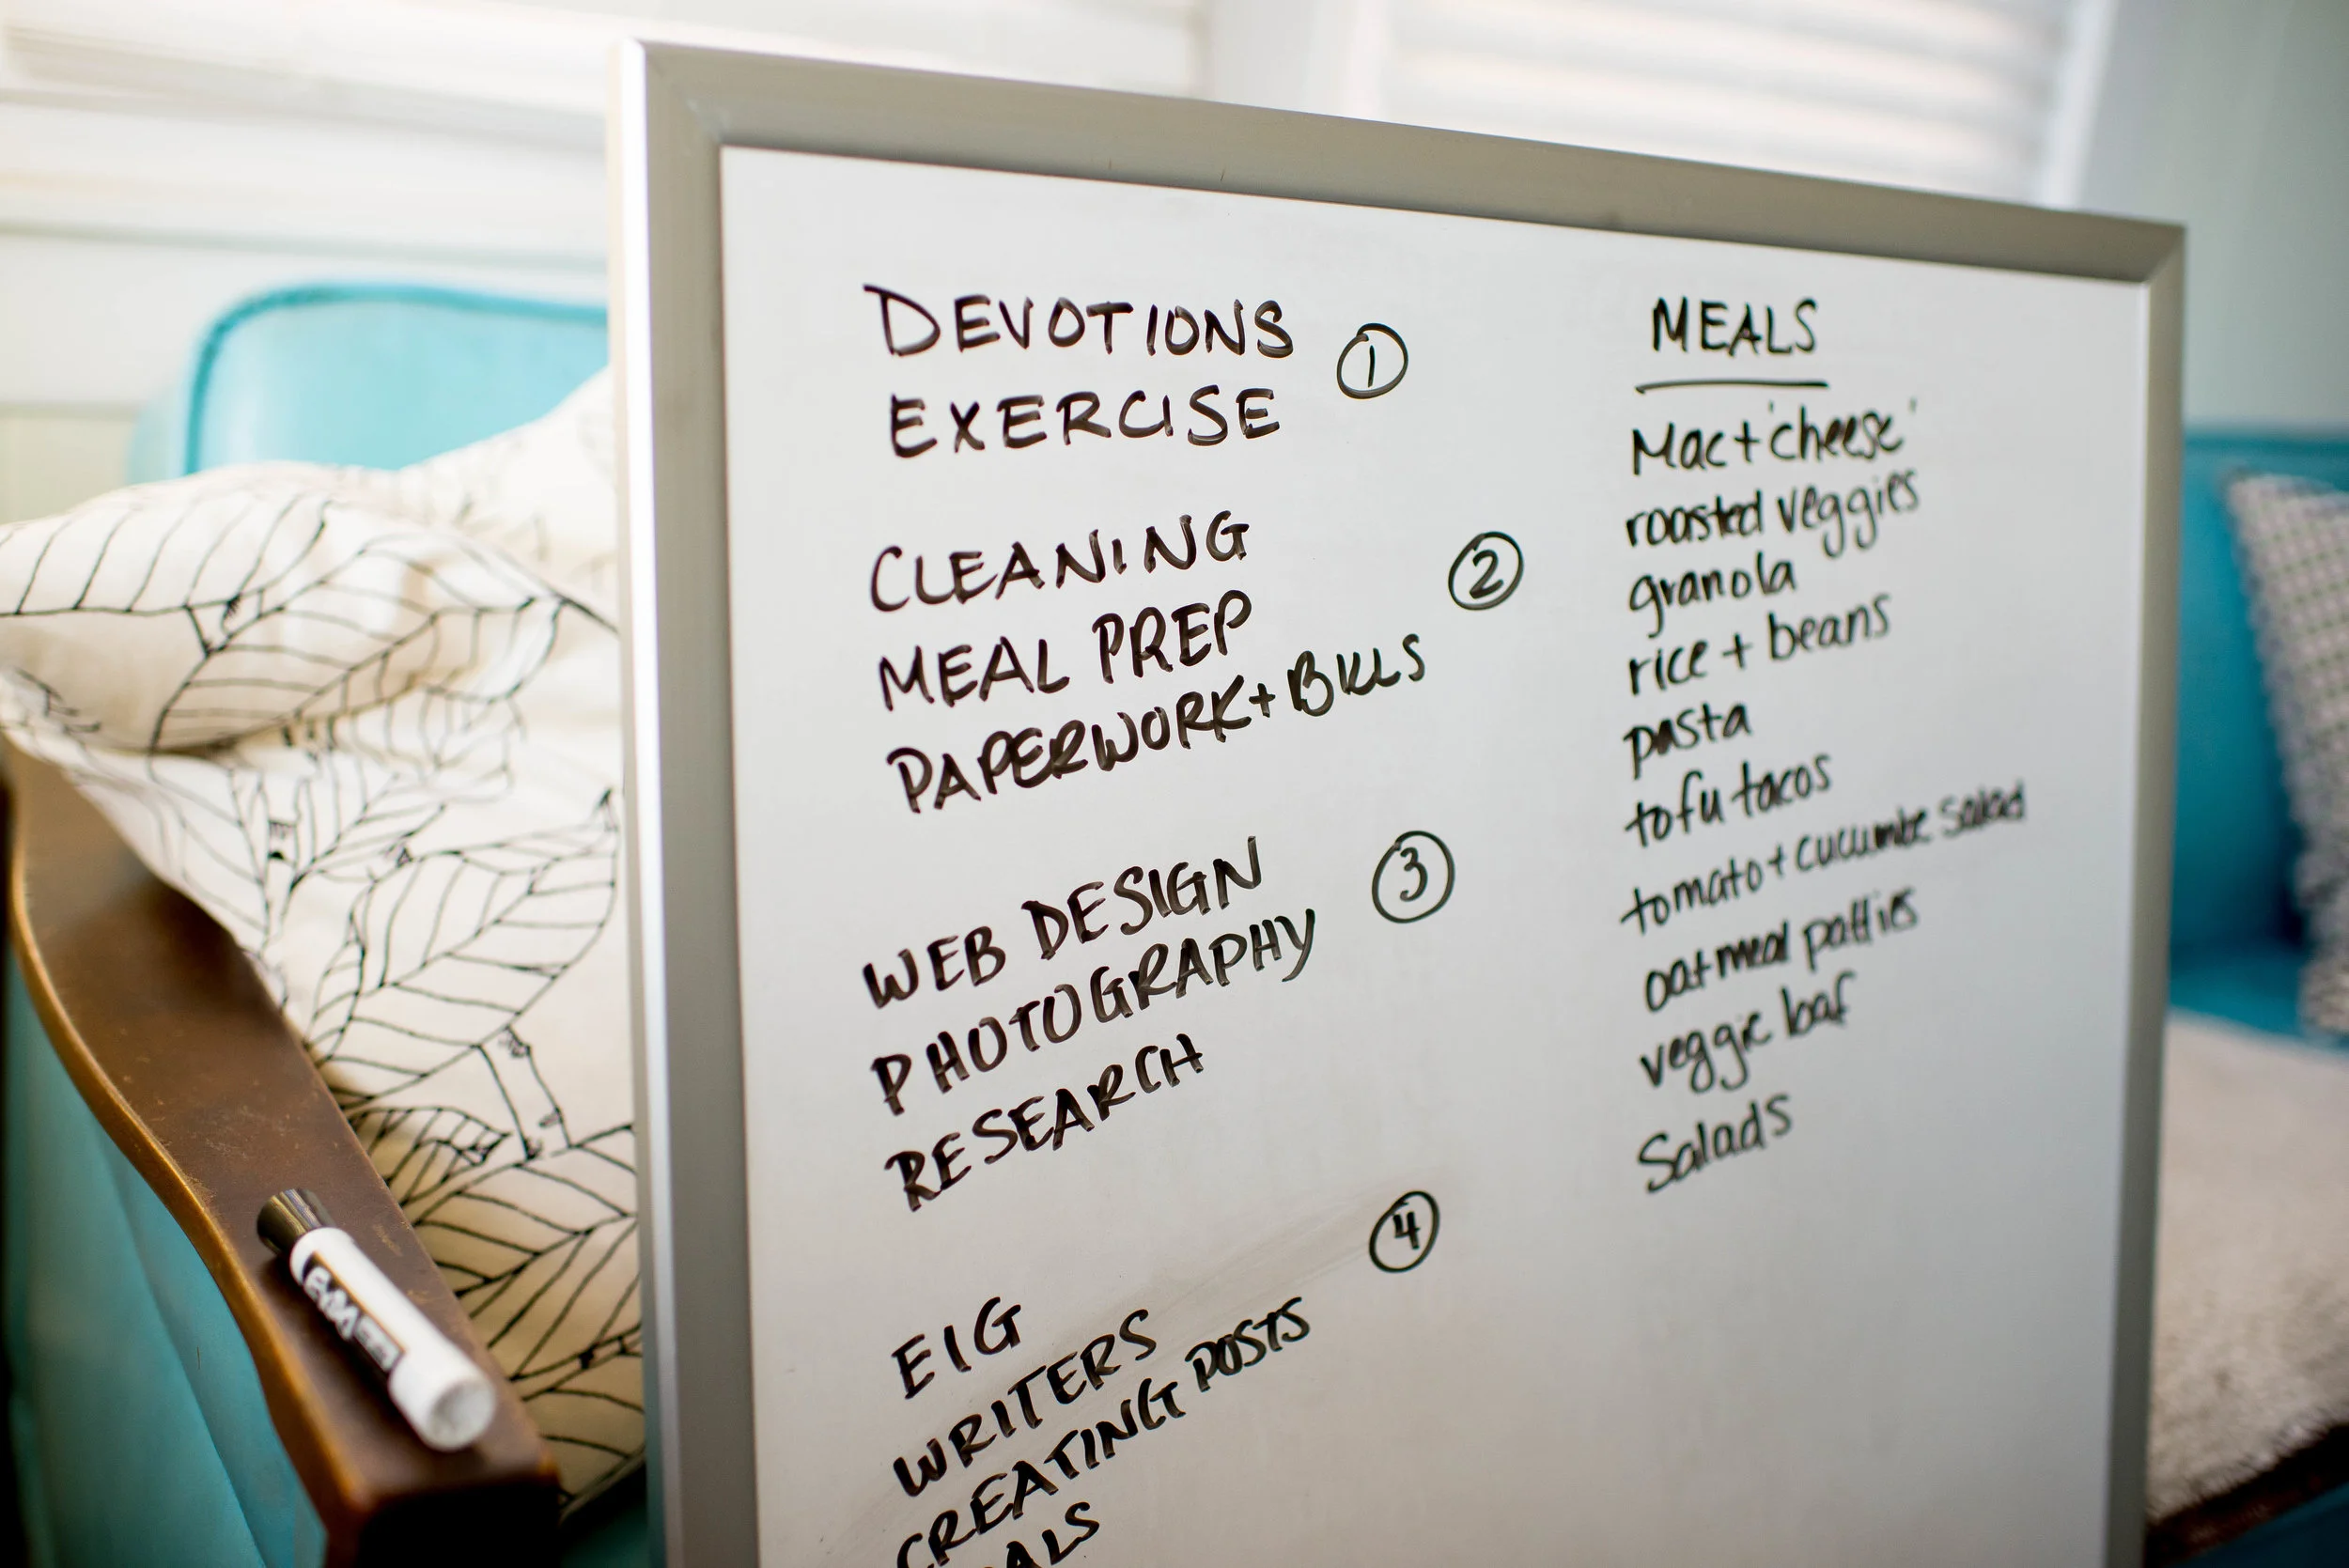 DEVOTIONS
EXERCISE
①
CLEANING
MEAL PREP
PAPERWORK + BILLS
②
WEB DESIGN
PHOTOGRAPHY
RESEARCH
③
EIG
WRITERS
CREATING POSTS
④
MEALS
Mac + 'cheese'
roasted veggies
granola
rice + beans
pasta
tofu tacos
tomato + cucumbe salad
oatmeal patties
veggie loaf
Salads
EXPO